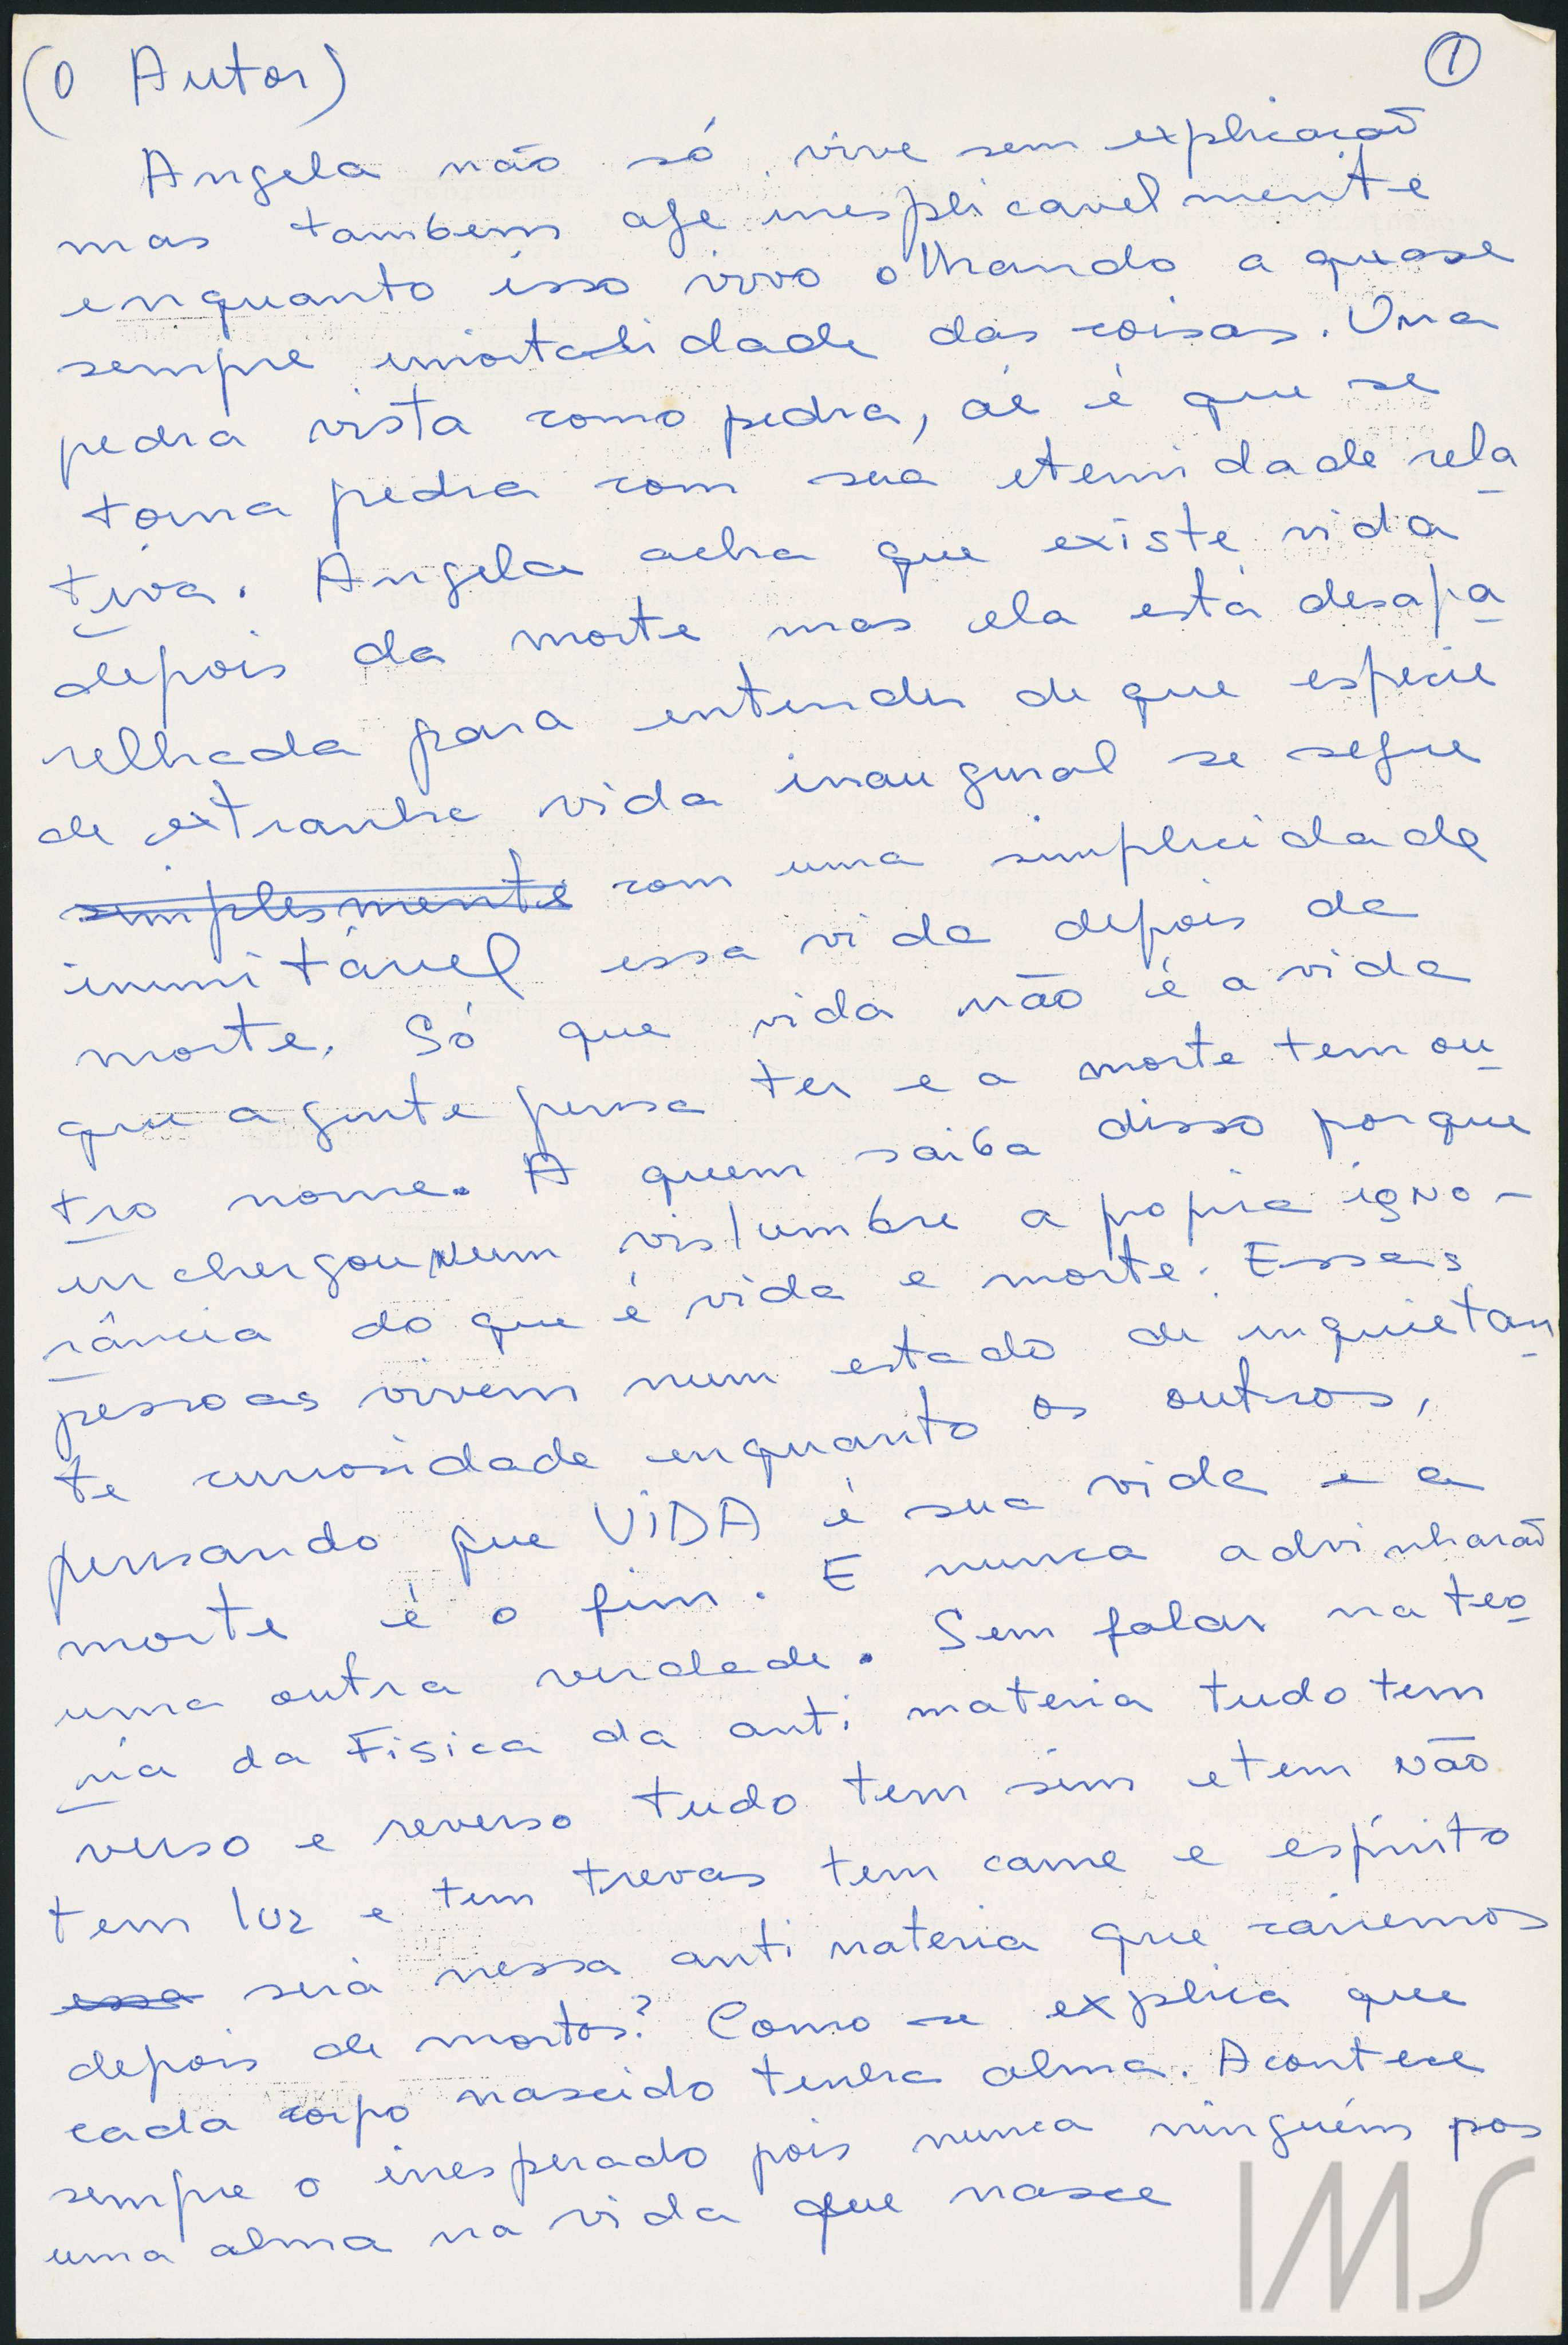 (O Autor) 1
Angela não só vive sem explicação
mas tambem age inesplicavelmente
enquanto isso vivo olhando a quase
sempre imortalidade das coisas. Uma
pedra vista como pedra, aí é que se
torna pedra com sua eternidade rela
tiva. Angela acha que existe vida
depois da morte mas ela está desapa
relhada para entender de que especie
de extranha vida inaugural se segue
simplesmente com uma simplicidade
inimitável essa vida depois da
morte. Só que vida não é a vida
que a gente pensa ter e a morte tem ou
tro nome. A quem saiba disso porque
enchergou num vislumbre a propria igno-
rância do que é vida e morte. Essas
pessoas vivem num estado de inquietan
te curiosidade enquanto os outros,
pensando que VIDA é sua vida e a
morte é o fim. E nunca advinharão
uma outra verdade. Sem falar na teo
ria da Fisica da anti materia tudo tem
verso e reverso tudo tem sim e tem não
tem luz e tem trevas tem carne e espírito
essa será nessa anti materia que cairemos
depois de mortos? Como se explica que
cada corpo nascido tenha alma. Acontece
sempre o inesperado pois nunca ninguém pos
uma alma na vida que nasce
IMS